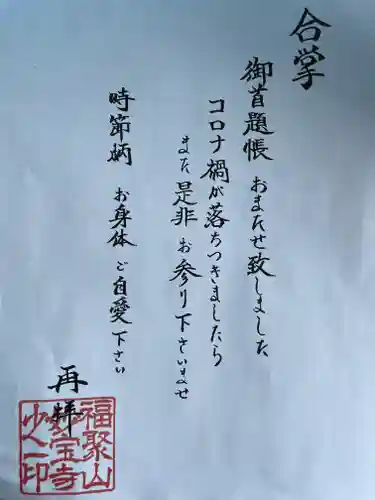 合掌
御首題帳 おまたせ致しました
コロナ禍が落ちつきましたら
また是非 お参り下さいませ
時節柄 お身体 ご自愛下さい
再拝
福聚山
妙宝寺